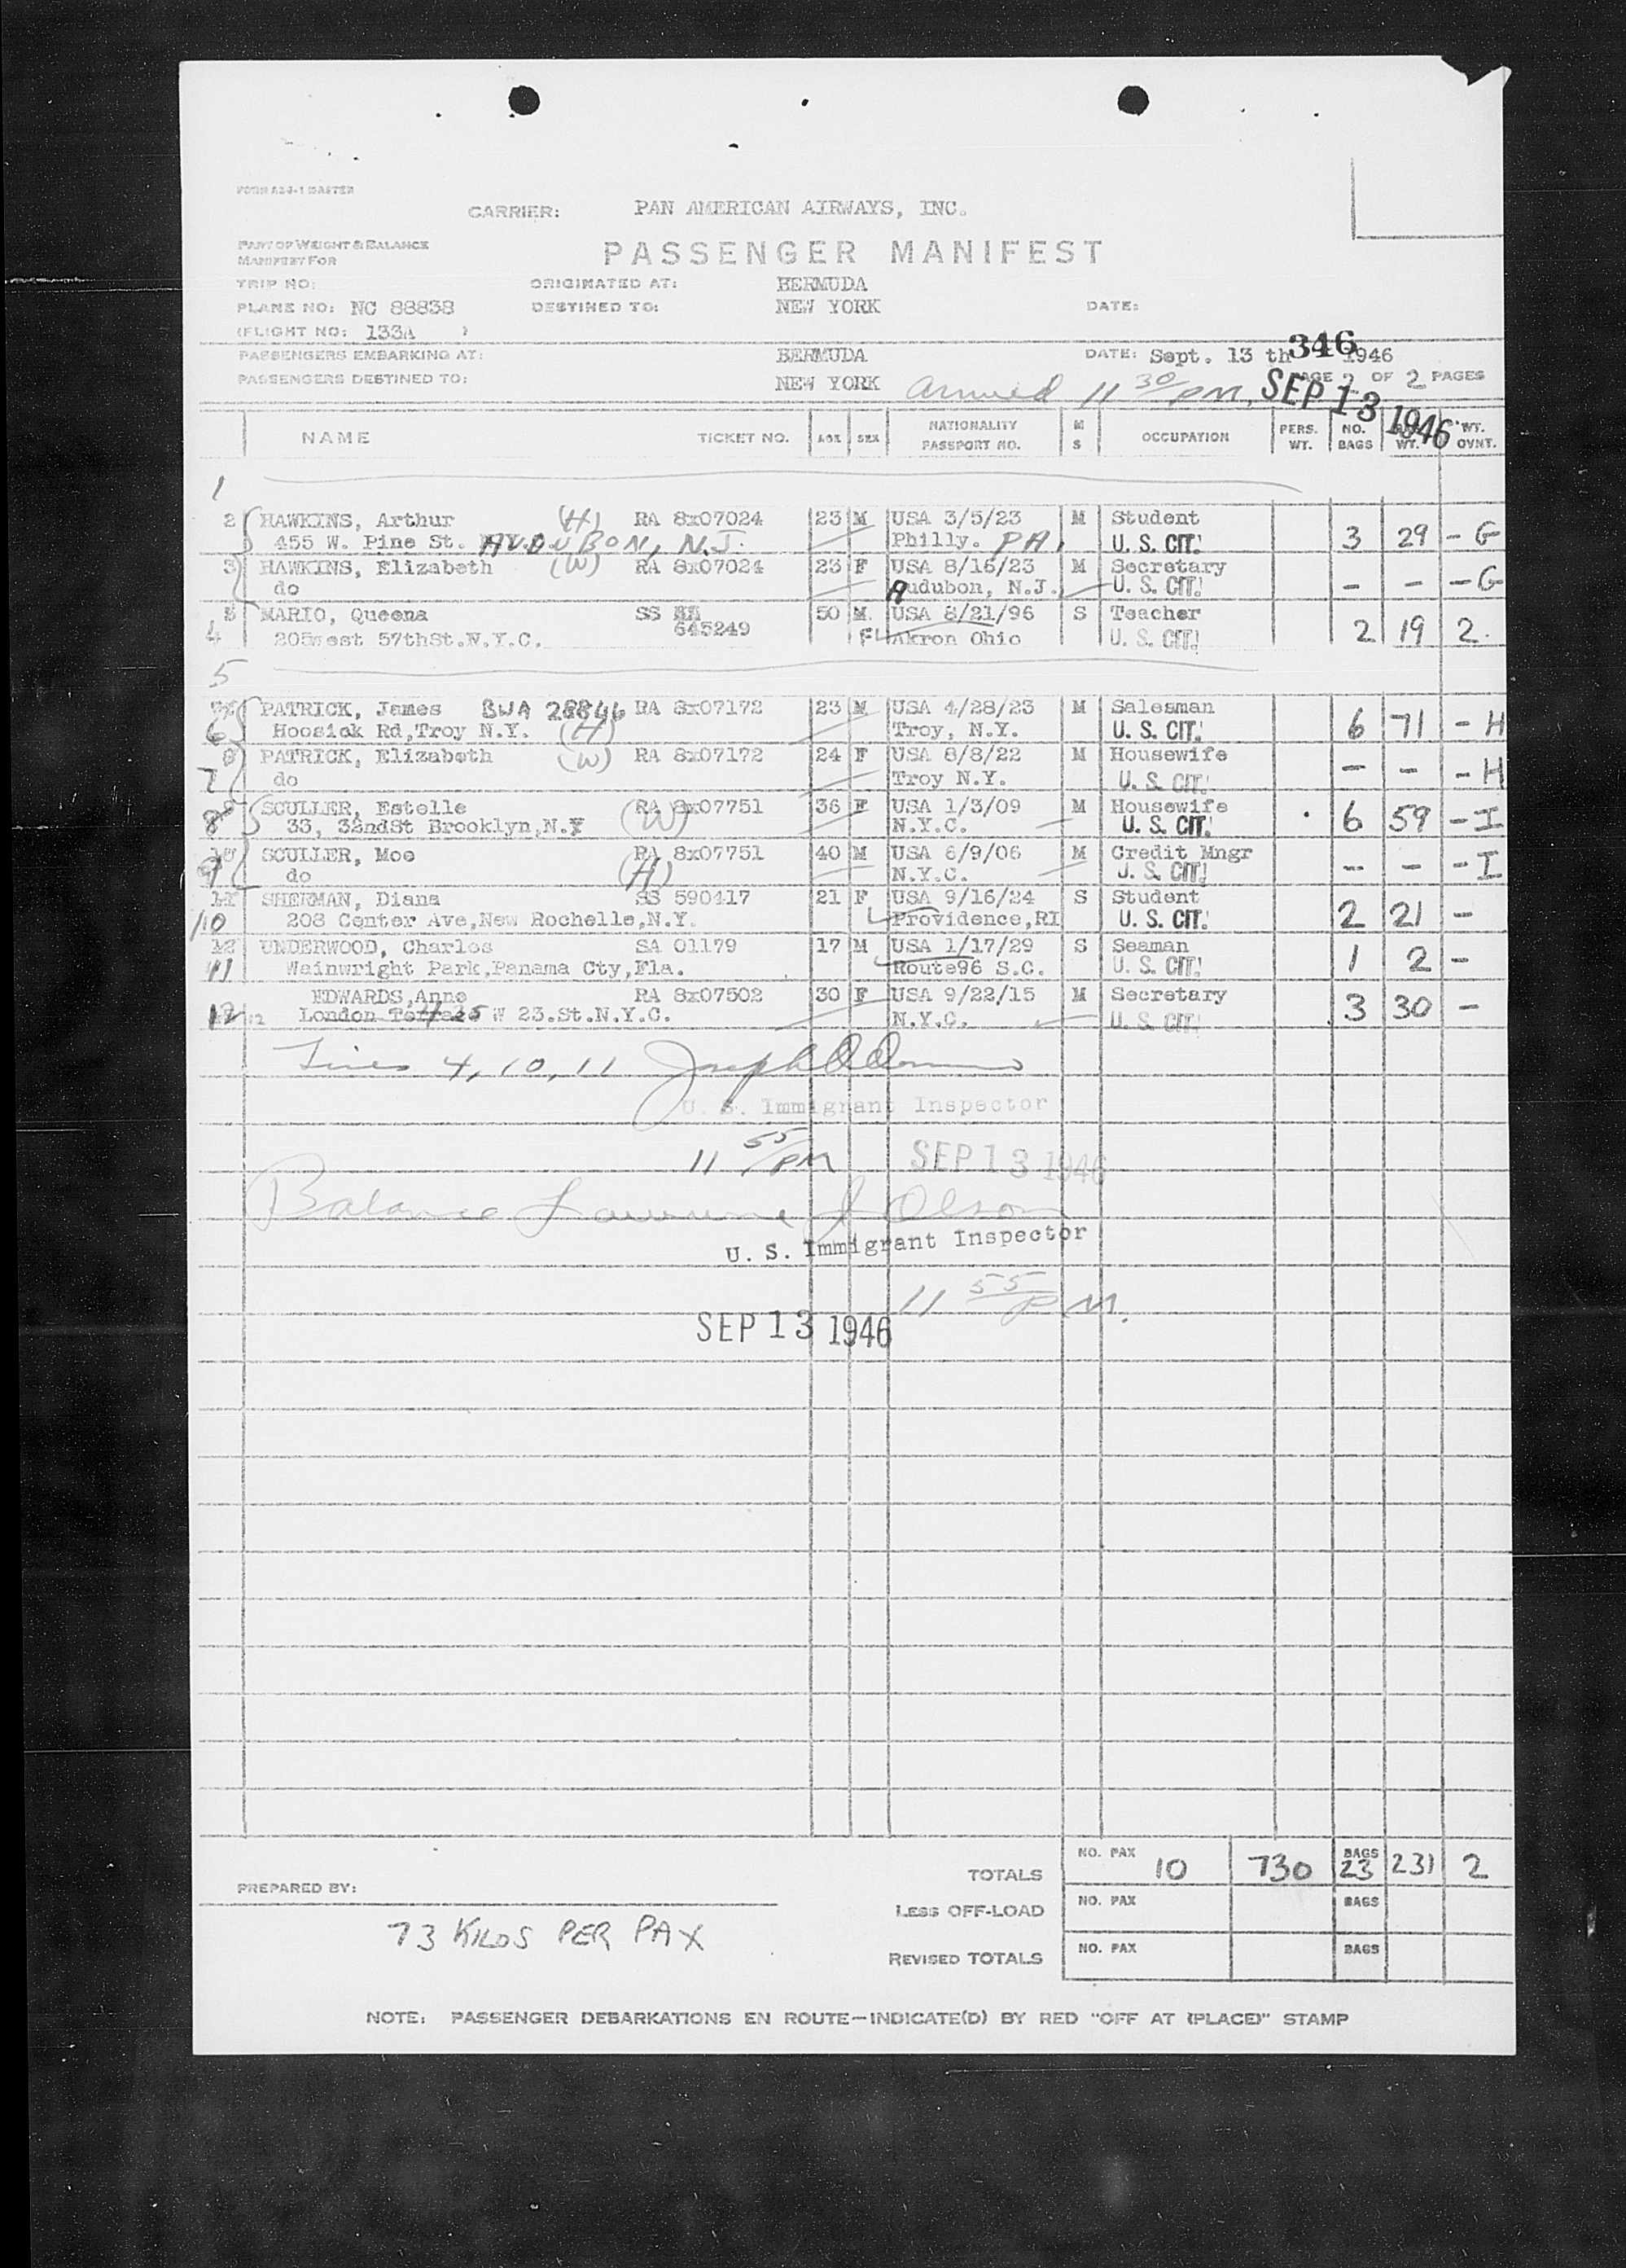 FORM A24-1 MASTER
CARRIER: PAN AMERICAN AIRWAYS, INC.
PART OF WEIGHT & BALANCE
MANIFEST FOR
PASSENGER MANIFEST
TRIP NO: ORIGINATED AT: BERMUDA
PLANE NO: NC 88838 DESTINED TO: NEW YORK DATE:
(FLIGHT NO: 133A )
PASSENGERS EMBARKING AT: BERMUDA DATE: Sept. 13 th 346 1946
PASSENGERS DESTINED TO: NEW YORK PAGE 2 OF 2 PAGES
arrived 11 30/PM. SEP 13 1946
NAME TICKET NO. AGE SEX NATIONALITY PASSPORT NO. M S OCCUPATION PERS. WT. NO. BAGS WT. WT. OVNT.
1
2 HAWKINS, Arthur (H) RA 8x07024 23 M USA 3/5/23 M Student
455 W. Pine St. AUDUBON, N.J. Philly. PA, U. S. CIT. 3 29 - G
3 HAWKINS, Elizabeth (W) RA 8x07024 23 F USA 8/16/23 M Secretary
do Audubon, N.J. U. S. CIT. - - - G
5 MARIO, Queena SS 645249 50 M. USA 8/21/96 S Teacher
4 205west 57thSt.N.Y.C. F Akron Ohio U. S. CIT. 2 19 2.
5
PATRICK, James BWA 28846 RA 8x07172 23 M USA 4/28/23 M Salesman
6 Hoosick Rd,Troy N.Y. (H) Troy, N.Y. U. S. CIT. 6 71 - H
8 PATRICK, Elizabeth (W) RA 8x07172 24 F USA 8/8/22 M Housewife
7 do Troy N.Y. U. S. CIT. - - - H
SCULLER, Estelle RA 8x07751 36 F USA 1/3/09 M Housewife
8 33, 32ndSt Brooklyn,N.Y (W) N.Y.C. U. S. CIT. 6 59 - I
10 SCULLER, Moe RA 8x07751 40 M USA 6/9/06 M Credit Mngr
9 do (H) N.Y.C. U. S. CIT. - - - I
11 SHERMAN, Diana SS 590417 21 F USA 9/16/24 S Student
10 208 Center Ave,New Rochelle,N.Y. Providence,RI U. S. CIT. 2 21 -
12 UNDERWOOD, Charles SA 01179 17 M USA 1/17/29 S Seaman
11 Wainwright Park,Panama Cty,Fla. Route96 S.C. U. S. CIT. 1 2 -
EDWARDS,Anne RA 8x07502 30 F USA 9/22/15 M Secretary
12 London Terrace 435 W 23.St.N.Y.C. N.Y.C. U. S. CIT. 3 30 -
Lines 4, 10, 11 Joseph
U. S. Immigrant Inspector
11 55/PM SEP 13 1946
Balance Lawrence J Olson
U. S. Immigrant Inspector
11 55/PM.
SEP 13 1946
TOTALS NO. PAX 10 730 BAGS 23 231 2
PREPARED BY:
LESS OFF-LOAD NO. PAX BAGS
73 KILOS PER PAX
REVISED TOTALS NO. PAX BAGS
NOTE: PASSENGER DEBARKATIONS EN ROUTE—INDICATE(D) BY RED "OFF AT (PLACE)" STAMP